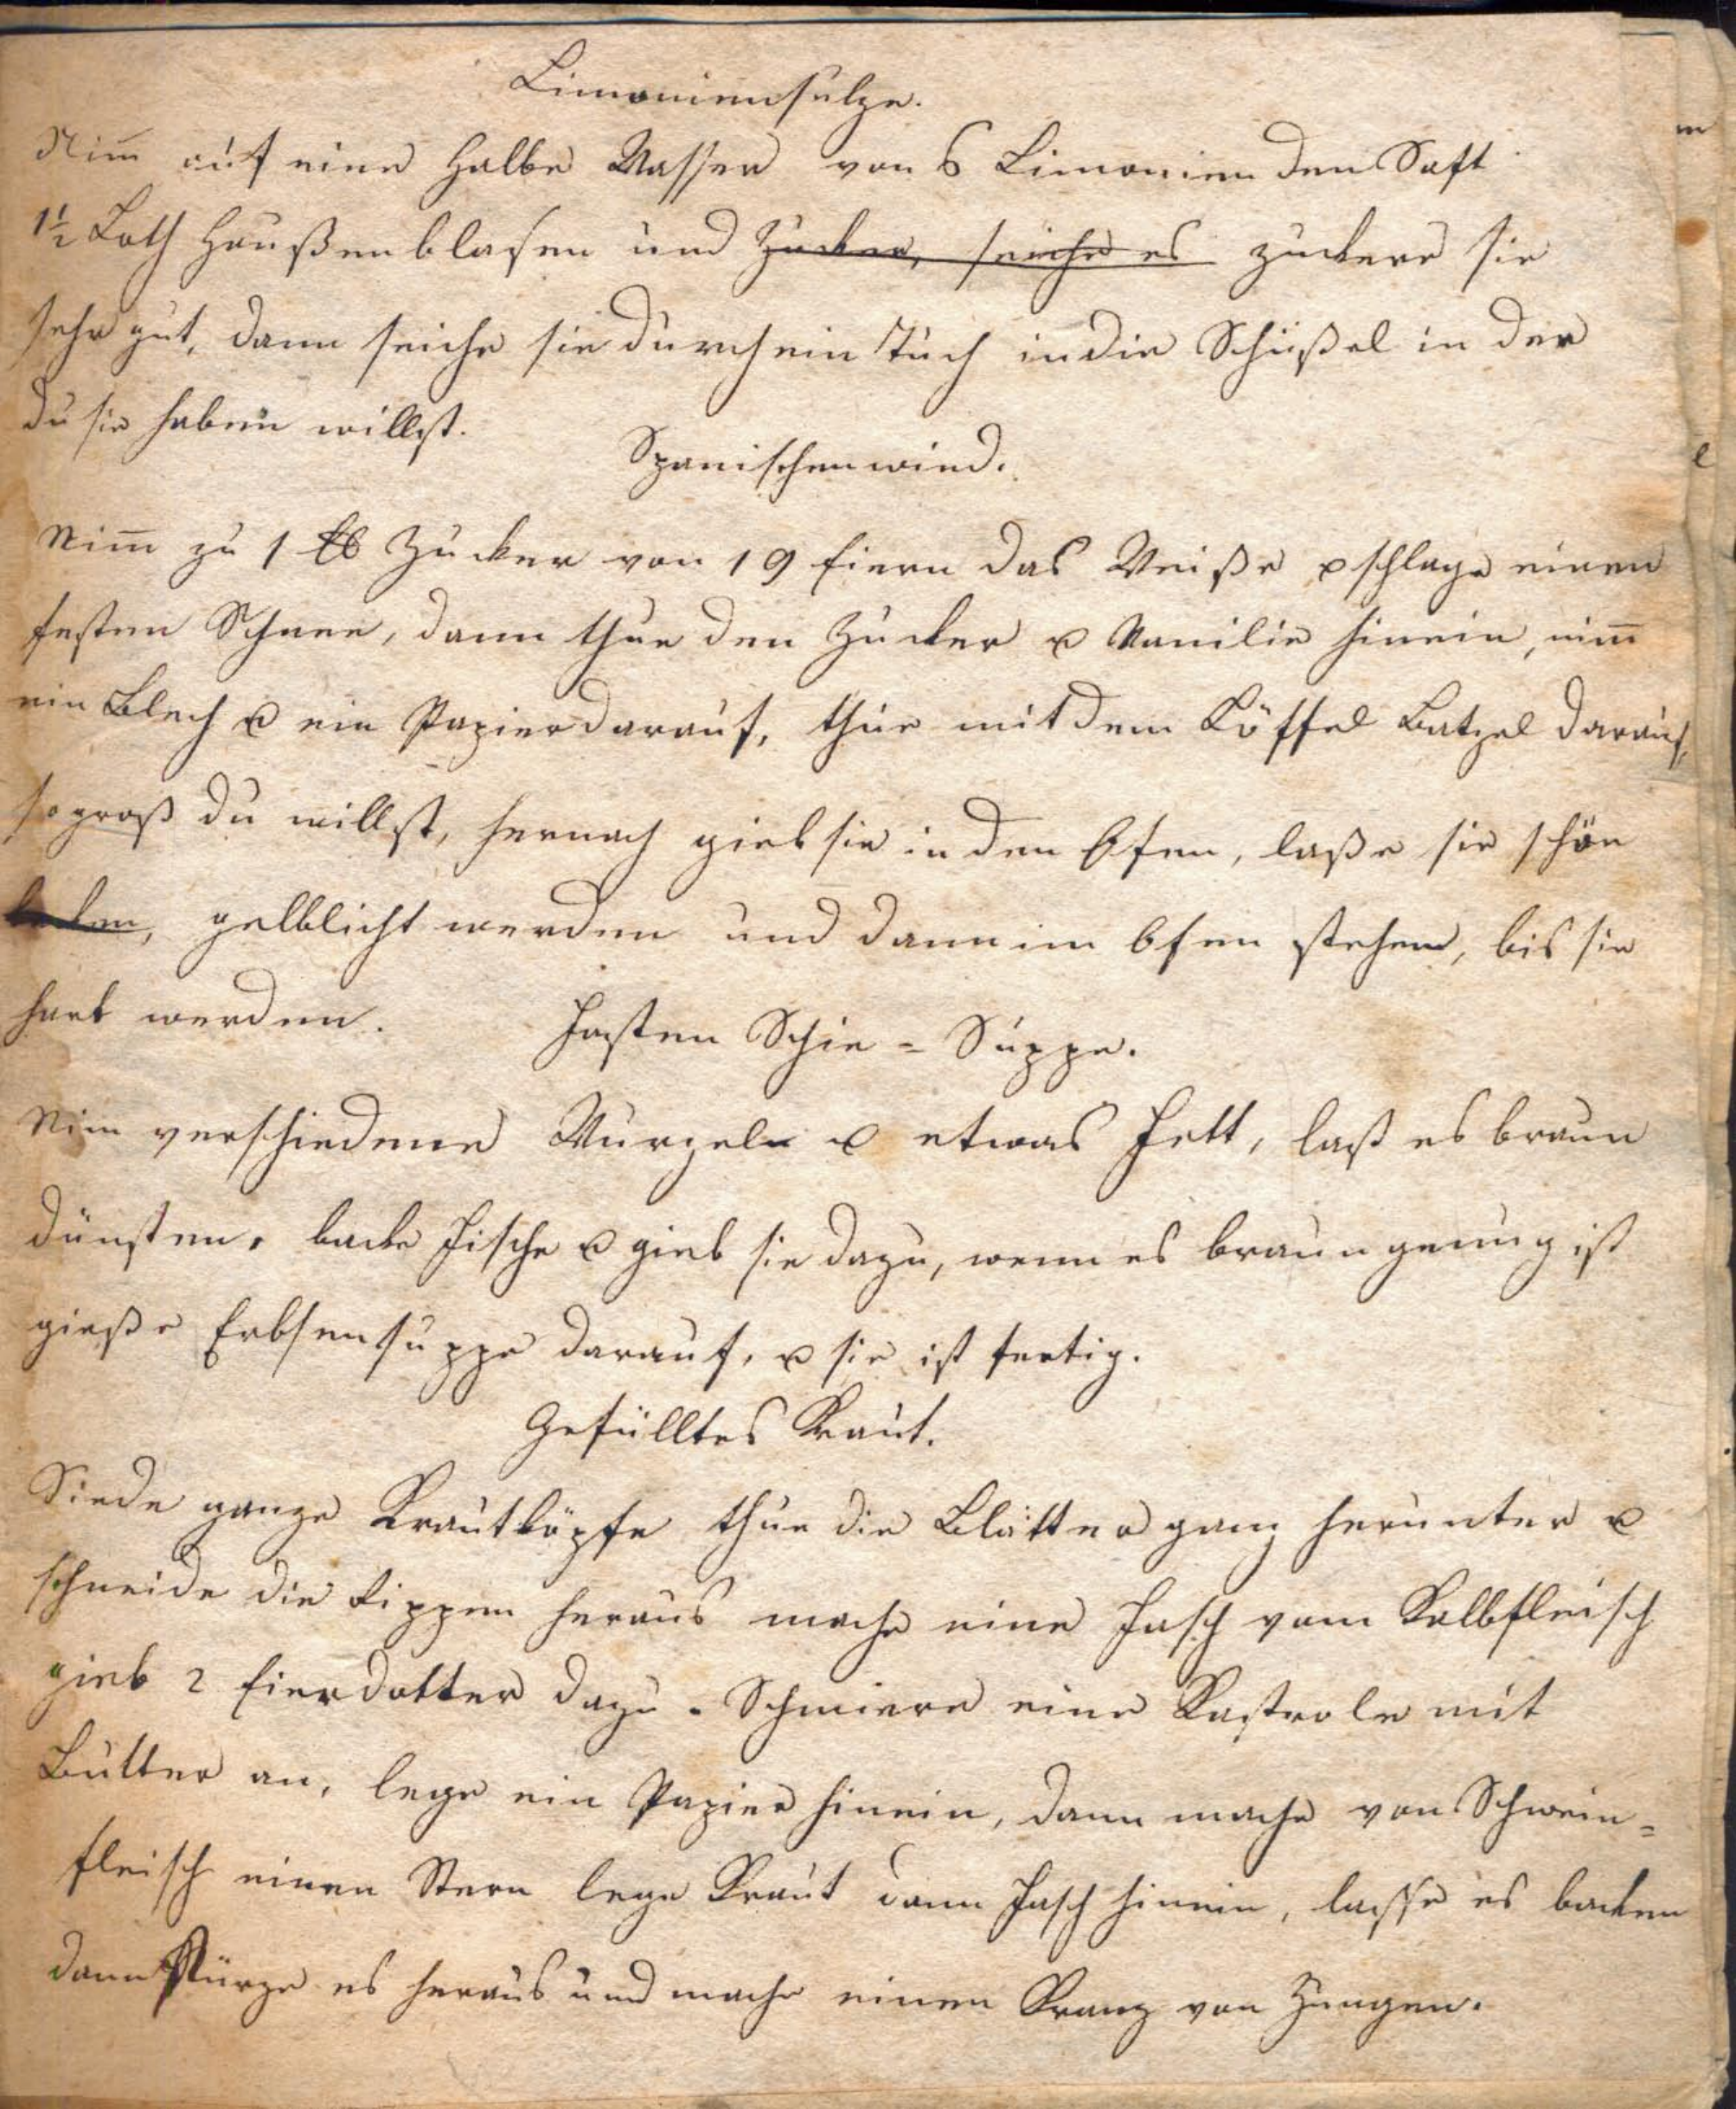 Limoniensulze.
Nim̅ auf eine Halbe Wasser von 6 Limonien den Saft
1½ Loth Haußenblasen und Zucker, seiche es zuckere sie
sehr gut, dann seiche sie durch ein Tuch in die Schüßel in der
du sie haben willst.
Spanischenwind.
Nim̅ zu 1 ℔ Zucker von 19 Eiern das Weiße u schlage einen
festen Schnee, dann thue den Zucker u Vanilie hinein, nim̅
ein Blech u ein Papier darauf, thue mit dem Löffel Batzel darauf,
so groß du willst, hernach gieb sie in den Ofen, laße sie schön
backen, gelblicht werden und dann im Ofen stehen, bis sie
hart werden.
Fasten Schie = Suppe.
Nim verschiedene Wurzeln u etwas Fett, laß es braun
dünsten, backe Fische u gieb sie dazu, wenn es braun genug ist
gieße Erbsensuppe darauf, u sie ist fertig.
Gefülltes Kraut.
Siede ganze Krautköpfe thue die Blätter ganz herunter u
schneide die Rippen heraus mache eine Fasch vom Kalbfleisch
gieb 2 Eierdotter dazu. Schmiere eine Kastrole mit
Butter an, lege ein Papier hinein, dann mache von Schwein=
fleisch einen Stern lege Kraut dann Fasch hinein, lasse es backen
dann stürze es heraus und mache einen Kranz von Zungen.